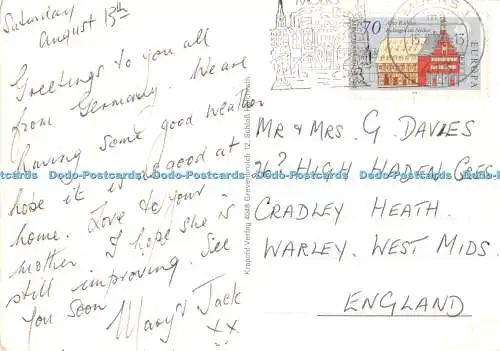 Saturday
August 13th
Greetings to you all
from Germany. We are
having some good weather
hope it is as good at
home. Love to your
mother. I hope she is
still improving. See
you soon
Mary & Jack
xx
Krapohl-Verlag 4048 Grevenbroich 12, Schloß Hülchrath
70
EUROPA
MR & MRS G DAVIES
HIGH HADEN CRES
CRADLEY HEATH.
WARLEY. WEST MIDS.
ENGLAND
Dodo-Postcards Dodo-Postcards Dodo-Postcards Dodo-Postcards Dodo-Postcards